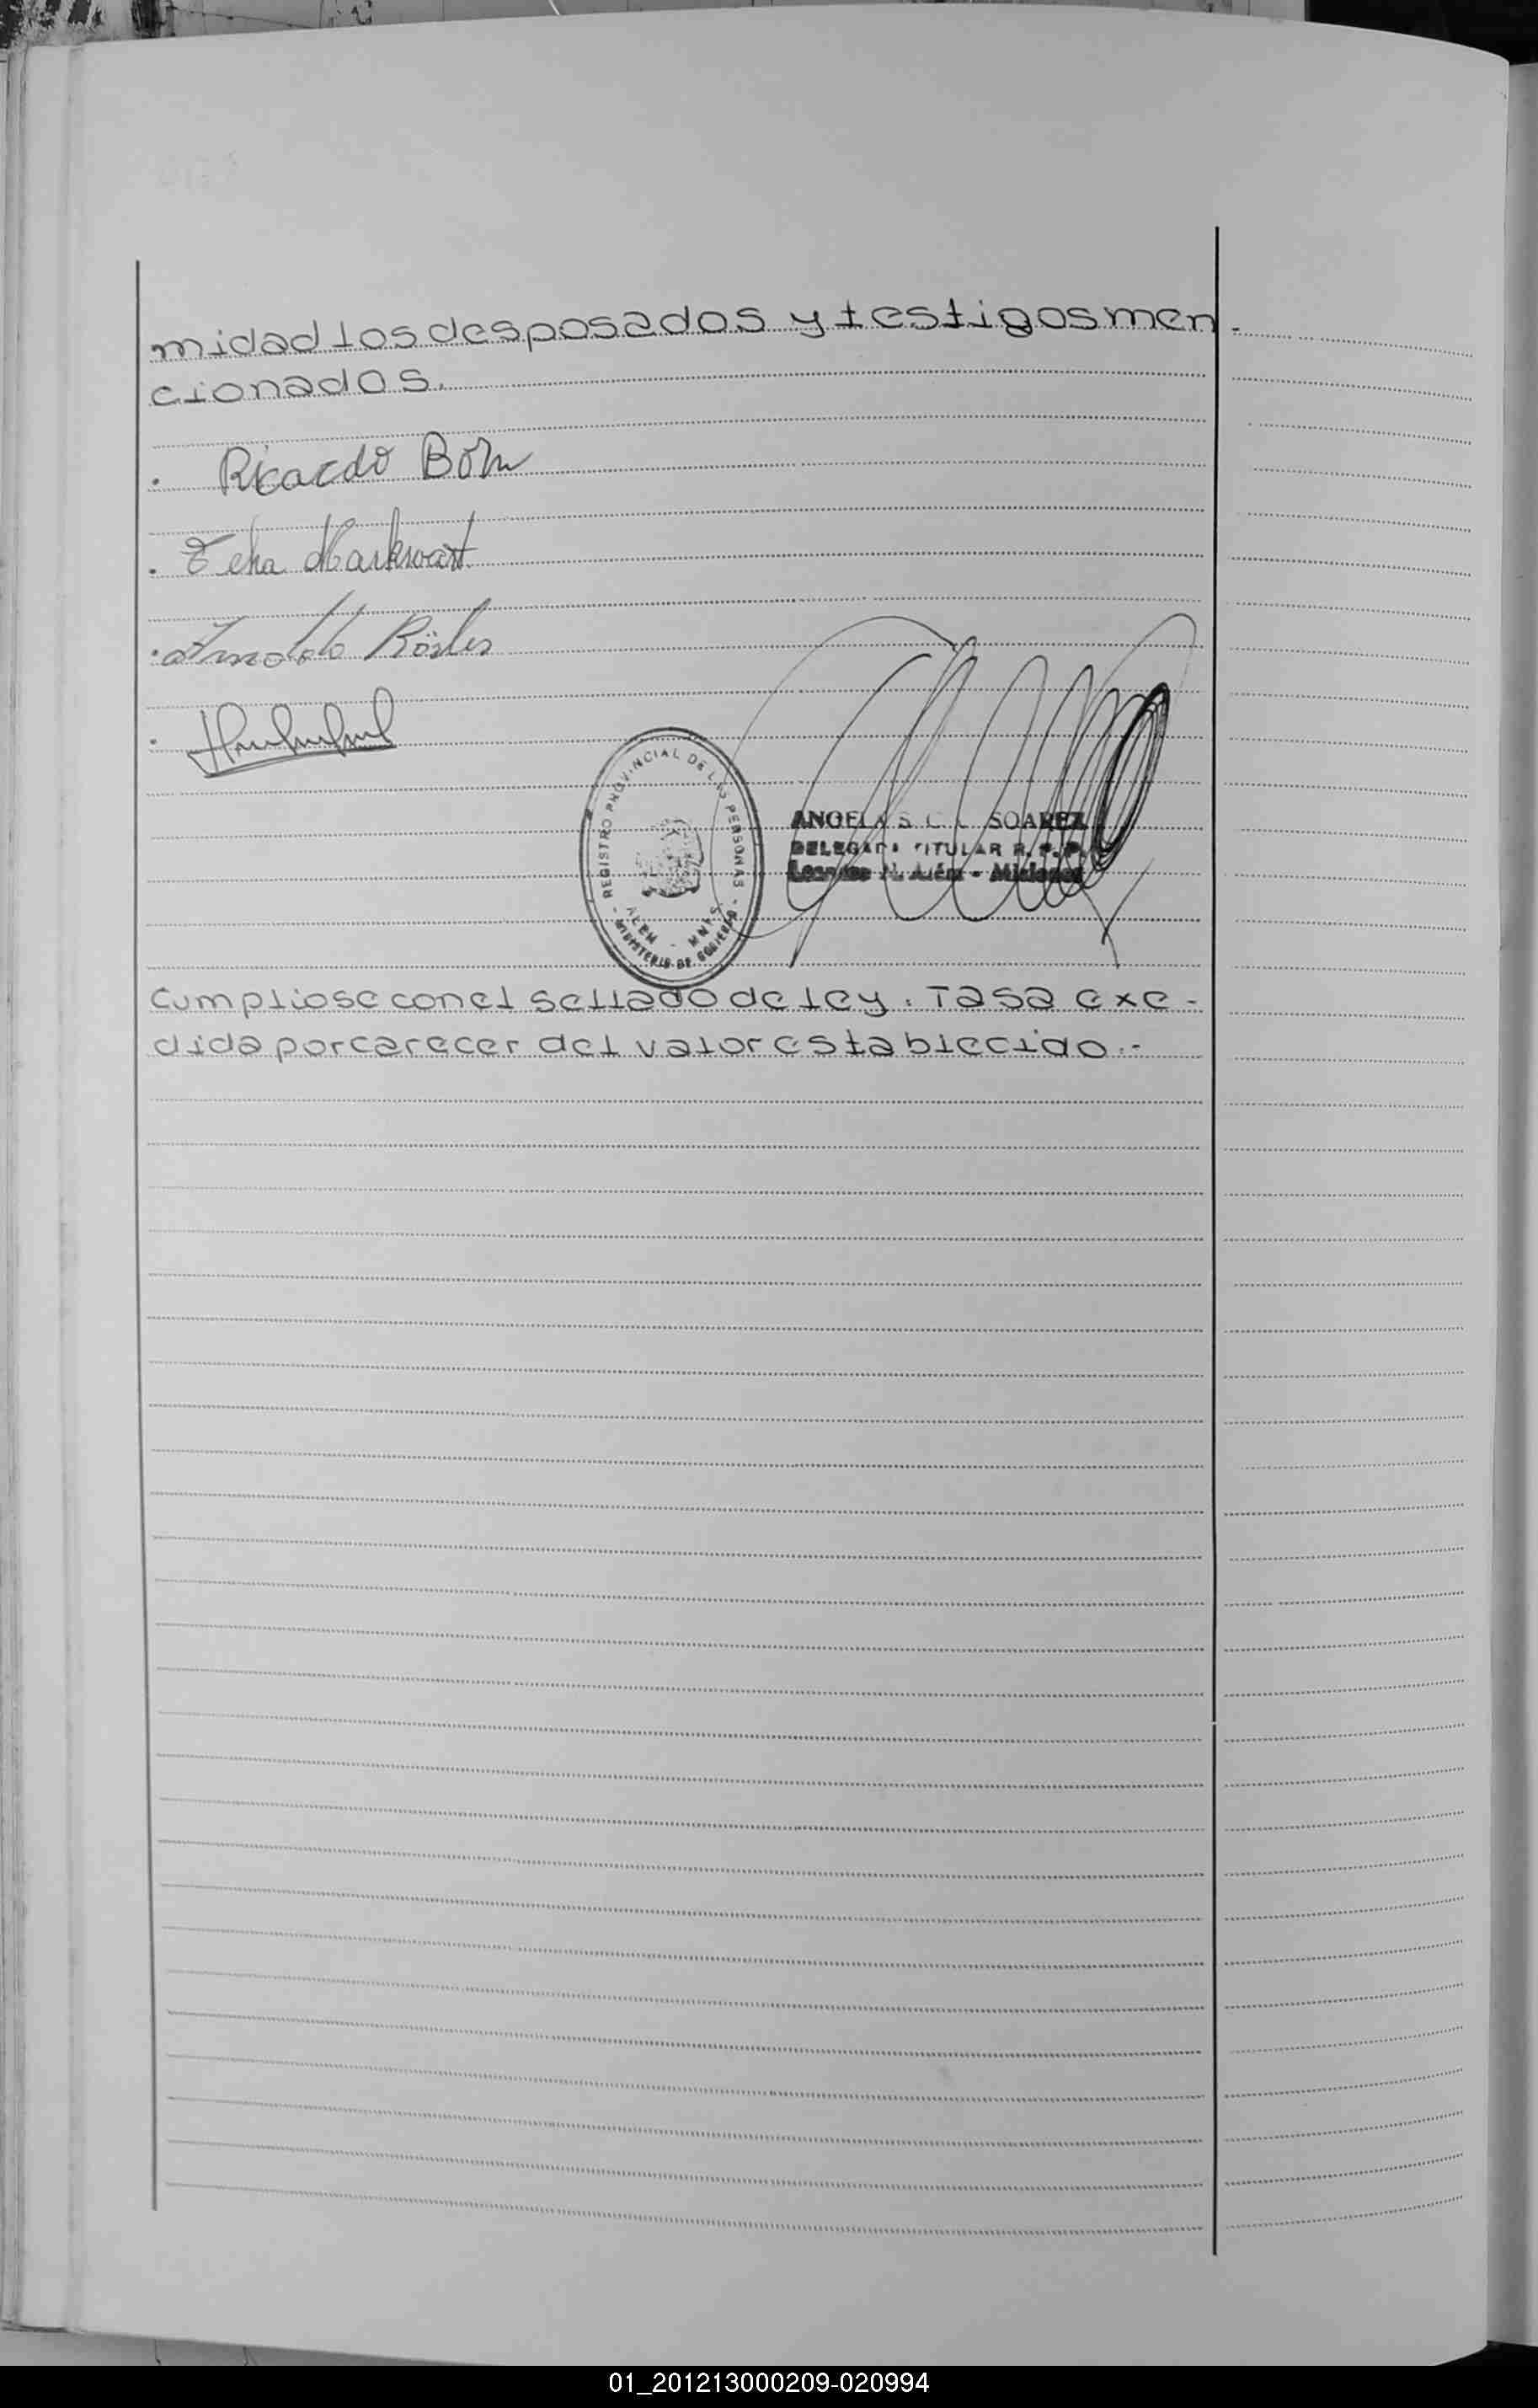 midad los desposados y testigos men -
cionados.
. Ricardo Böhr
. Markwart
. Arnoldo Rösler
REGISTRO PROVINCIAL DE LAS PERSONAS
ALEM - MNES
- MINISTERIO DE GOBIERNO -
ANGELA SOAREZ
DELEGADA TITULAR R. P. P.
Leandro N. Alem - Misiones
Cumpliose con el sellado de ley. Tasa exe -
dida por carecer del valor establecido.-
01_201213000209-020994